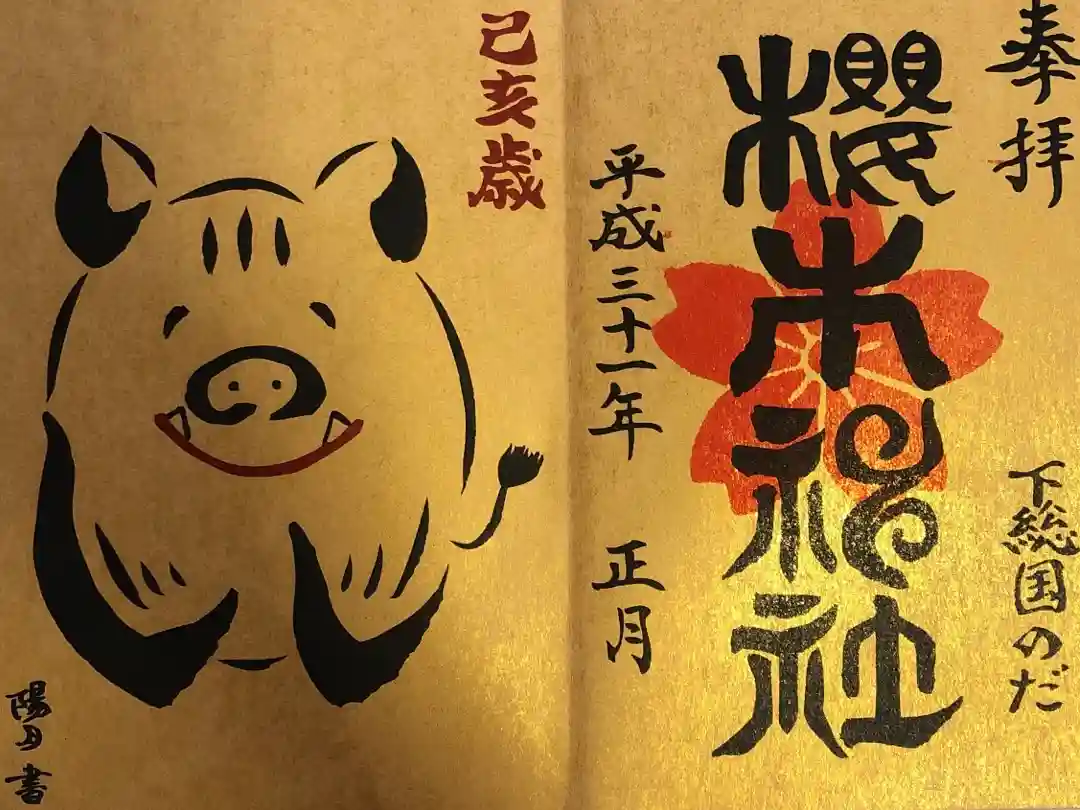 奉拝
下総国のだ
櫻木神社
平成三十一年 正月
己亥歳
陽 書